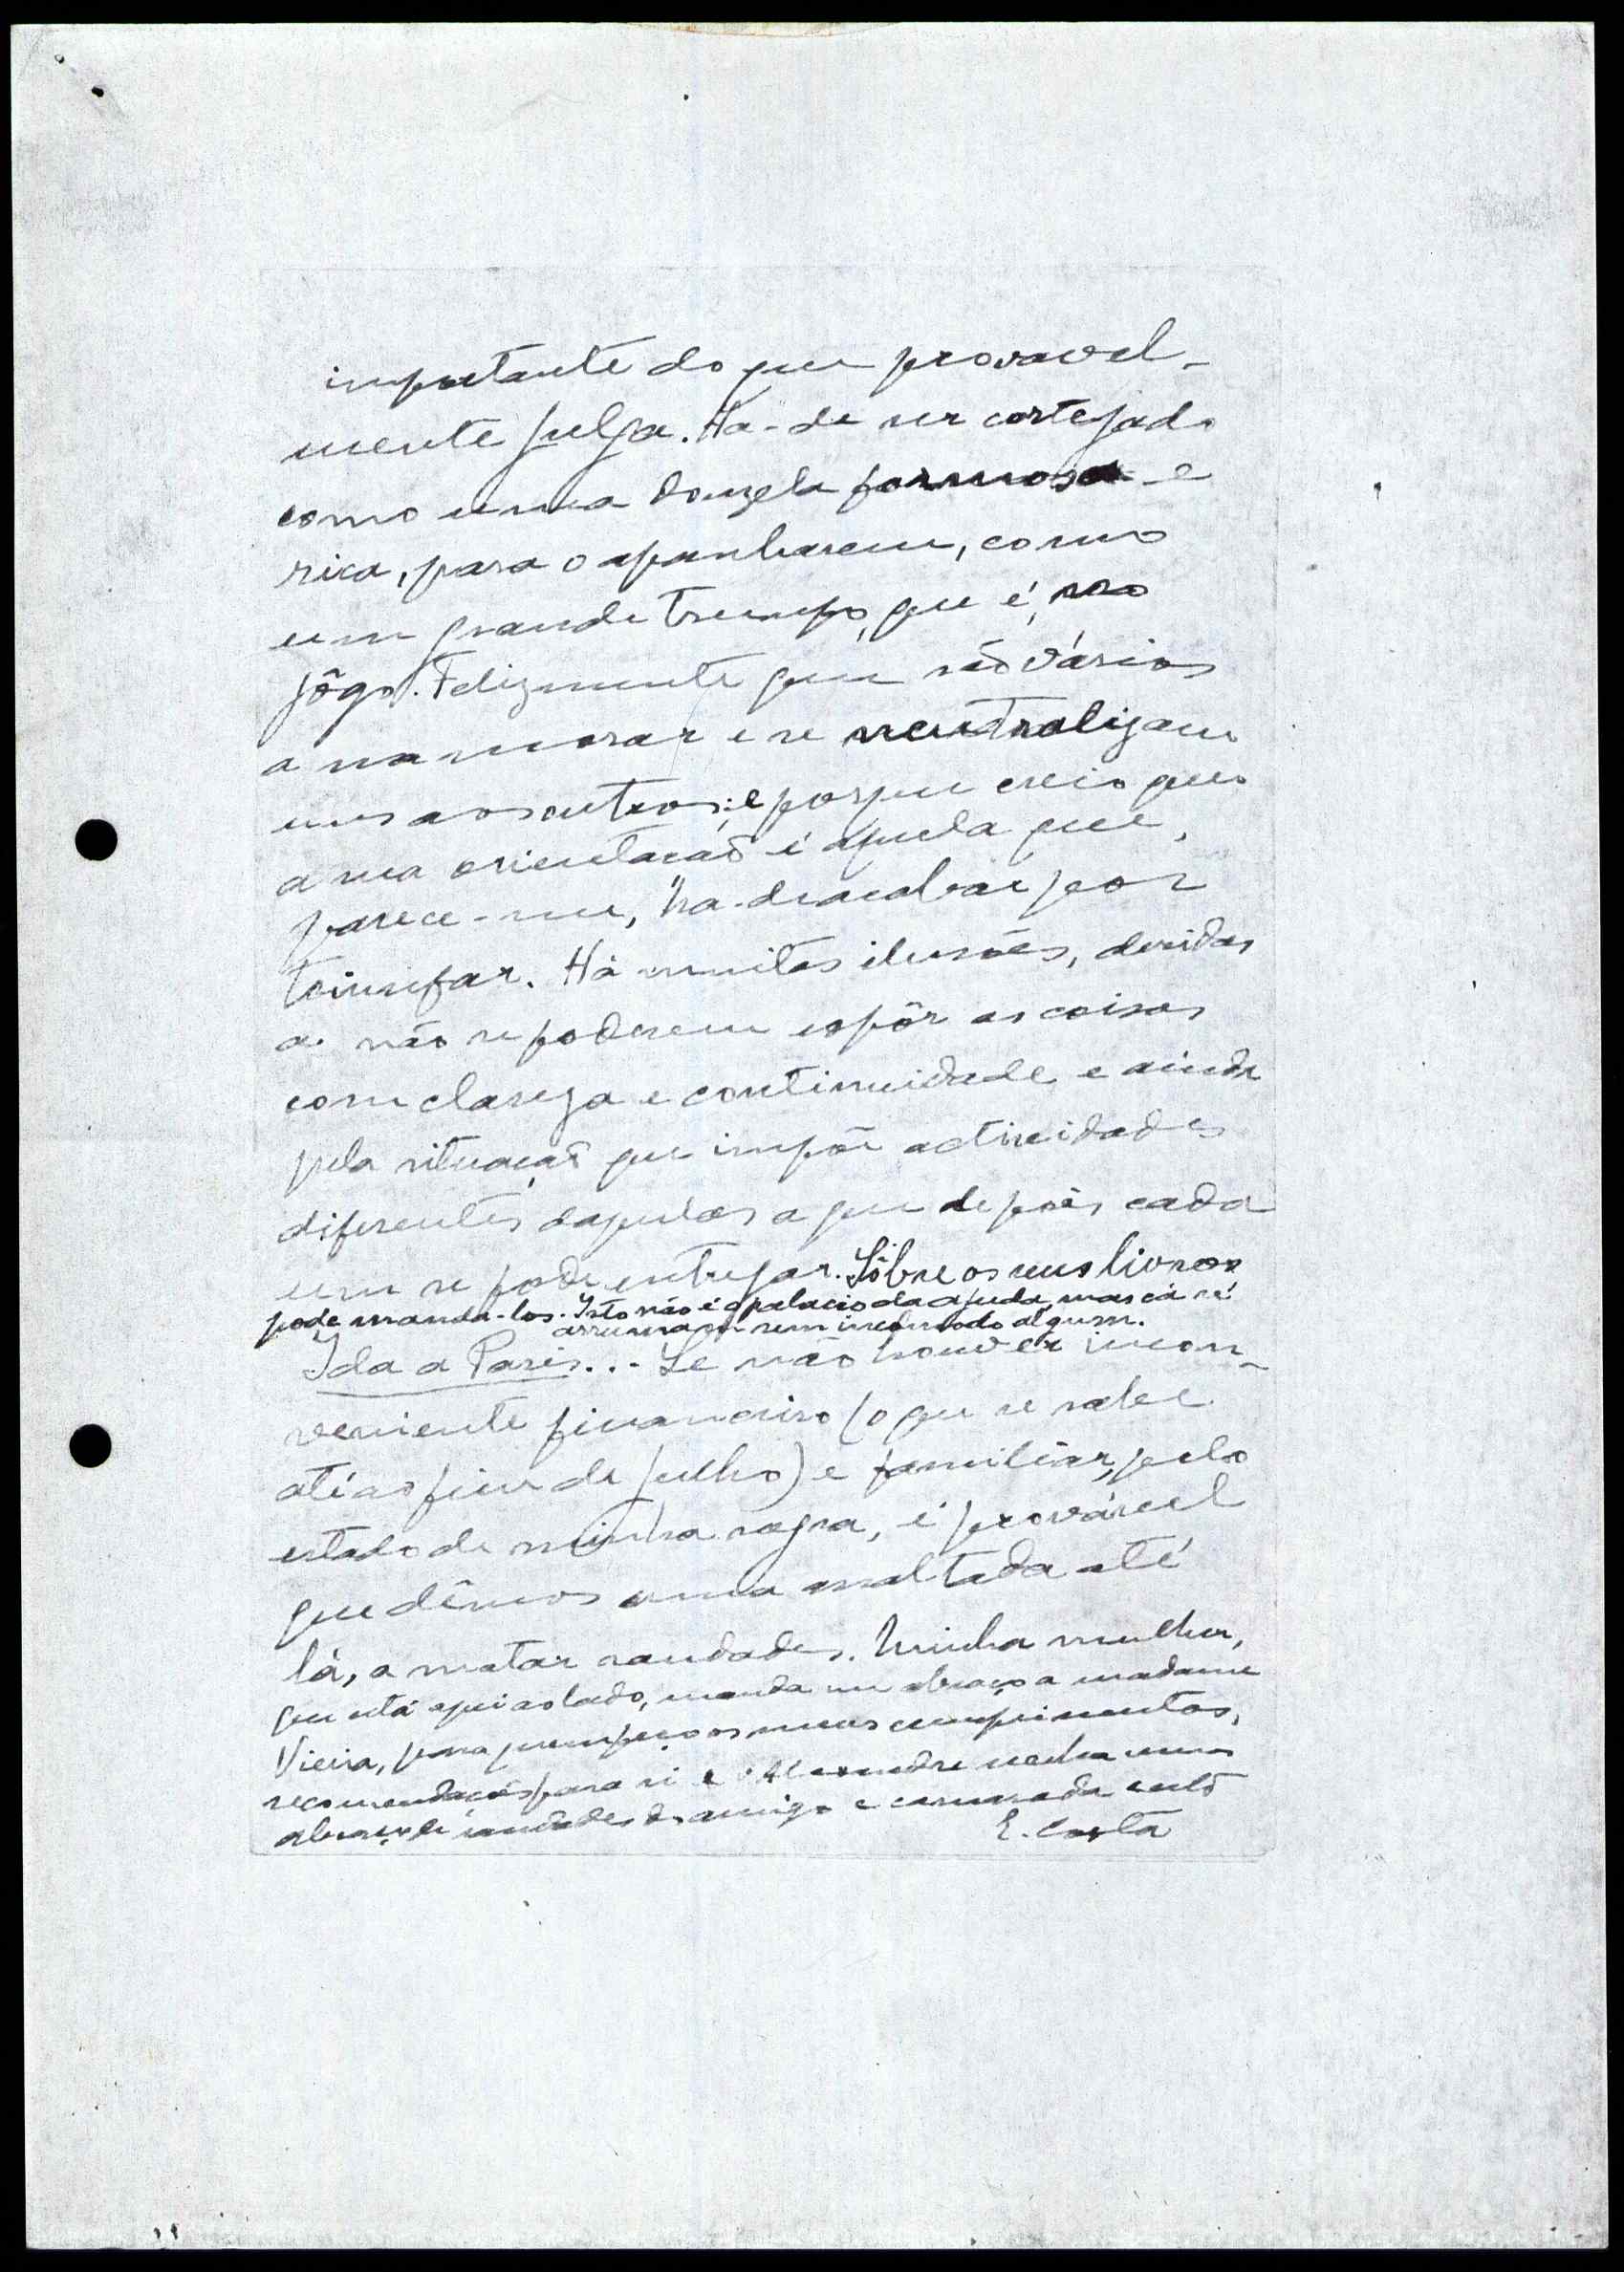 importante do que provavel-
mente julga. Ha-de ser cortejado
como uma donzela formosa e
rica, para o apanharem, como
um grande trunfo, que é, no
jôgo. Felizmente que são vários
a namorar e se neutralizam
uns aos outros: e porque creio que
a sua orientação é aquela que,
parece-me, ha-de acabar por
triunfar. Há muitas ilusões, devidas
a não se poderem expôr as coisas
com clareza e continuidade e ainda
pela situação que impõe actividades
diferentes daquelas a que depois cada
um se pode entregar. Sôbre os seus livros
pode manda-los. Isto não é o palacio da ajuda, mas cá se
arrumam sem incomodo algum.
Ida a Paris... Se não houver incon-
veniente financeiro (o que se sabe
até ao fim de julho) e familiar, pelo
estado de minha sogra, é provável
que dêmos uma assaltada até
lá, a matar saudades. Minha mulher,
que está aqui ao lado, manda um abraço a madame
Vieira, para quem peço os meus cumprimentos,
recomendações para si e o Alexandre receba uns
abraços de saudades do amigo e camarada
E. Costa